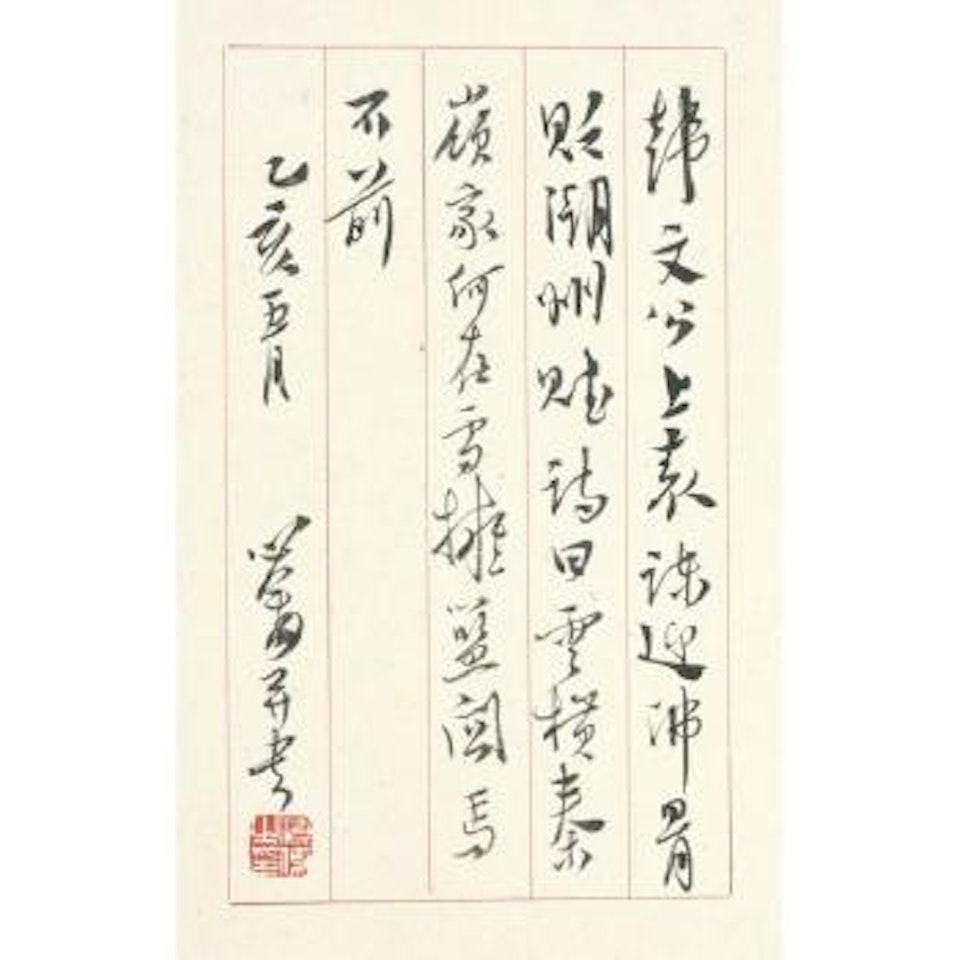 韓文公上表諫迎佛骨
貶潮州賦詩曰雲橫秦
嶺家何在雪擁藍關馬
不前
乙亥五月 并書